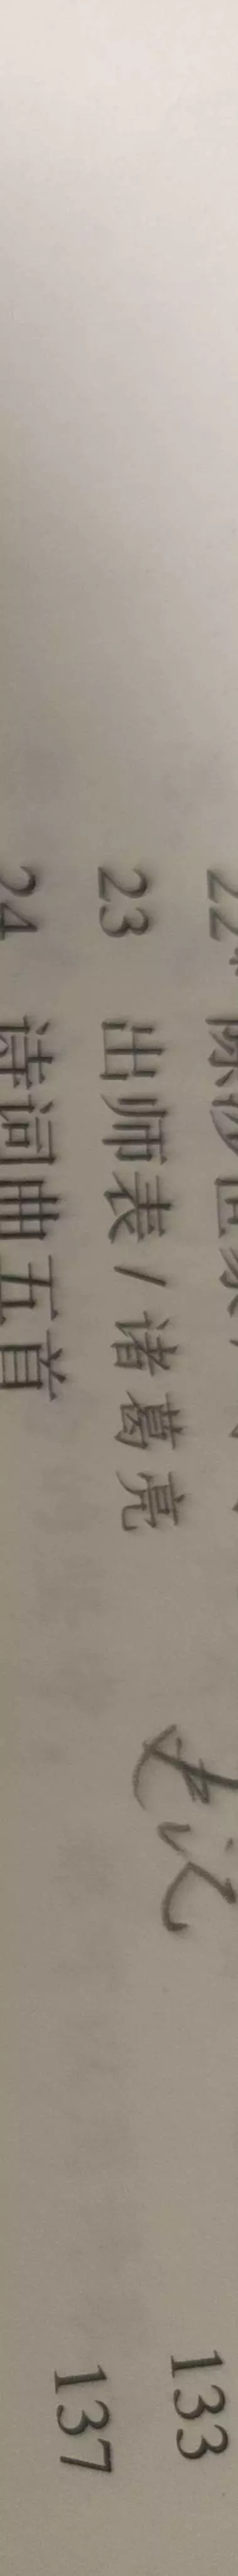 22* 陈涉世家 /
23 出师表 / 诸葛亮 133
24 诗词曲五首 137